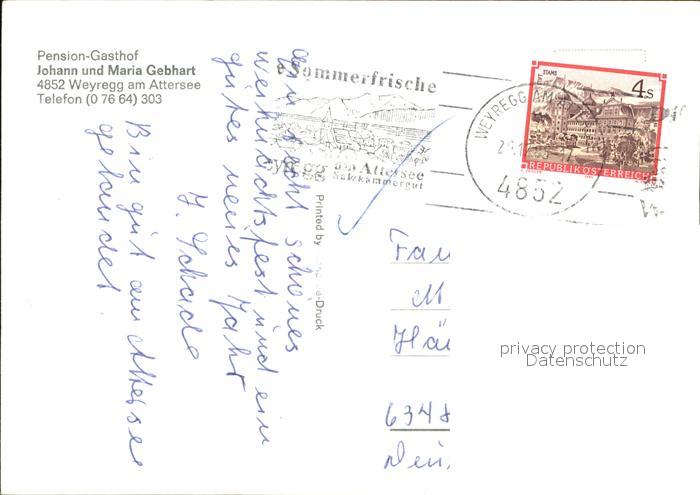 Pension-Gasthof
Johann und Maria Gebhart
4852 Weyregg am Attersee
Telefon (0 76 64) 303
Sommerfrische
am Attersee
Salzkammergut
WEYREGG AM
4852
STAMS
4 S
REPUBLIK ÖSTERREICH
recht schönes
Weihnachtsfest und ein
gutes neues Jahr
J. Schade
Bin gut am Attersee
gelandet
Printed by
-Druck
Fam
M
Hä
6348
privacy protection
Datenschutz